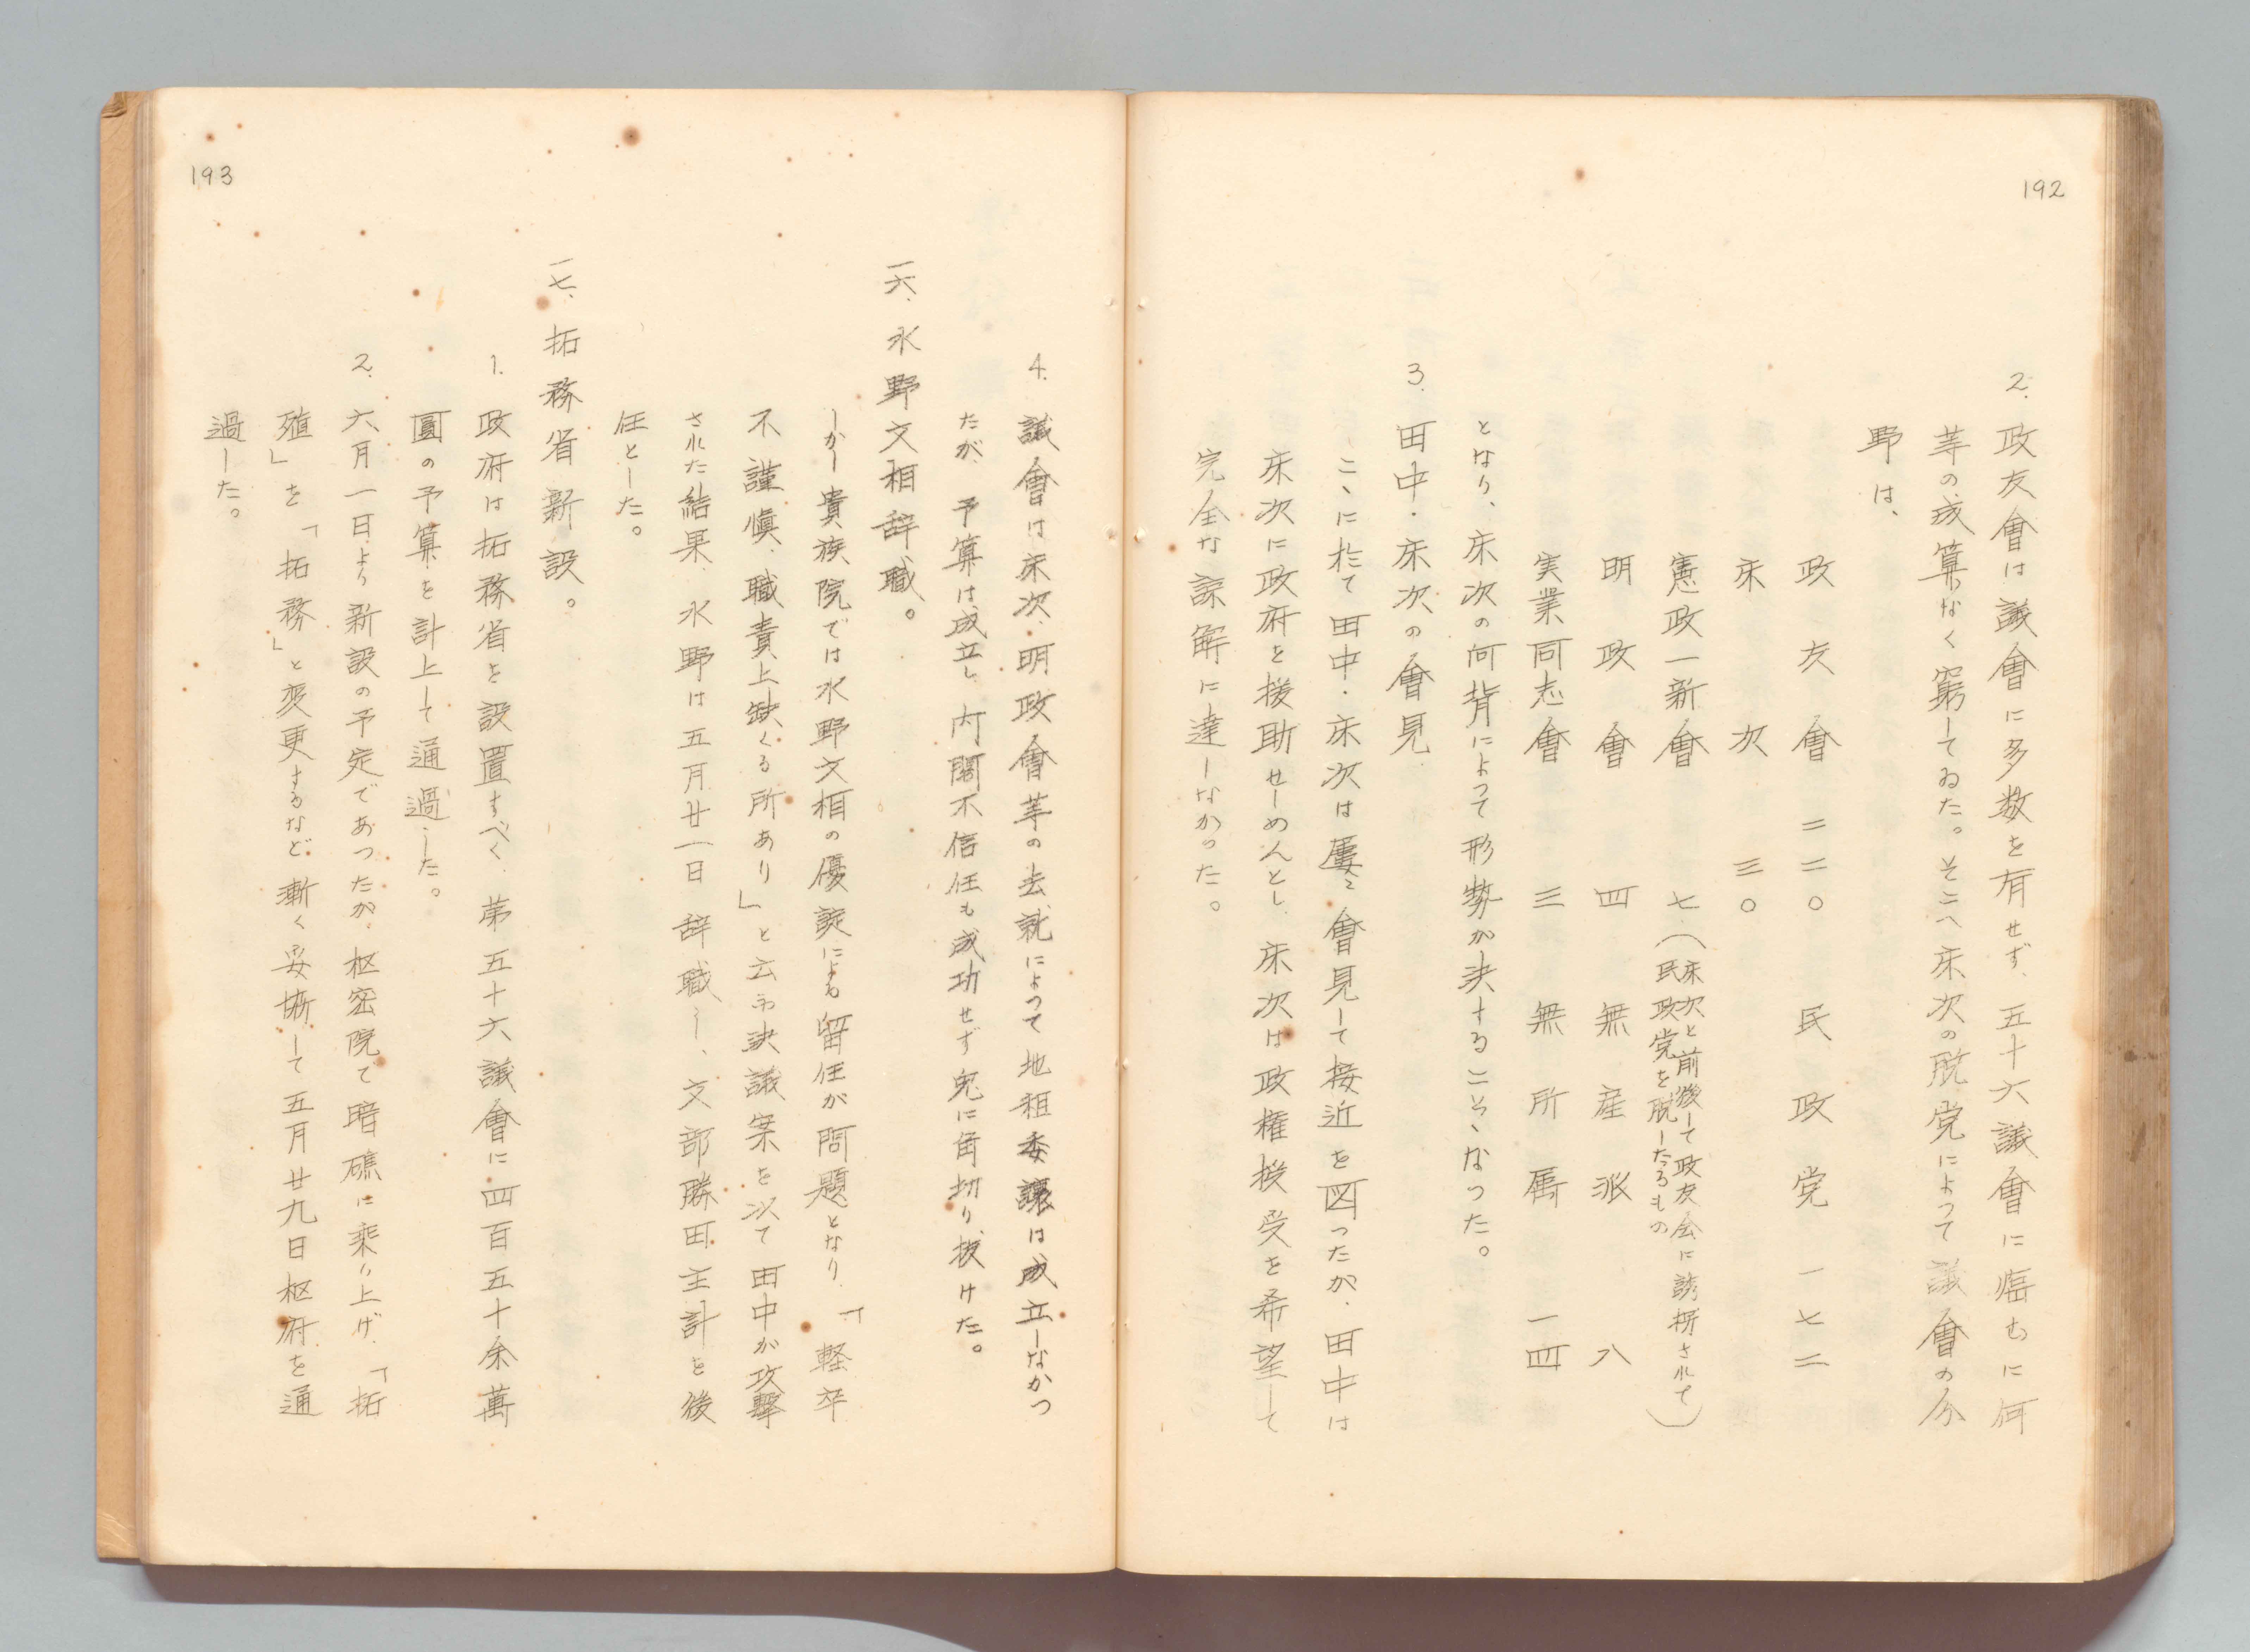 192
2. 政友會は議會に多数を有せず、五十六議會に臨むに何
等の成算なく窮してゐた。そこへ床次の脱党によつて議會の分
野は、
政友會 二二〇 民政党 一七二
床次 三〇
憲政一新會 七(床次と前後して政友会に誘拐されて
民政党を脱したるもの)
明政會 四 無産派 八
実業同志會 三 無所属 一四
となり、床次の向背によつて形勢が決することゝなつた。
3. 田中・床次の會見
こゝに於て田中・床次は屡々會見して接近を図つたが、田中は
床次に政府を援助せしめんとし、床次は政権授受を希望して
完全な諒解に達しなかつた。
193
4. 議會は床次、明政會等の去就によつて地租委譲は成立しなかつ
たが、予算は成立し、内閣不信任も成功せず兎に角切り抜けた。
一六、水野文相辞職。
しかし貴族院では水野文相の優諚による留任が問題となり、「軽卒
不謹慎、職責上缺くる所あり」と云ふ決議案を以て田中が攻撃
された結果、水野は五月廿一日辞職し、文部勝田主計を後
任とした。
一七、拓務省新設。
1. 政府は拓務省を設置すべく、第五十六議會に四百五十余萬
圓の予算を計上して通過した。
2. 六月一日より新設の予定であつたが、枢密院で暗礁に乗り上げ、「拓
殖」を「拓務」と変更するなど漸く妥協して五月廿九日枢府を通
過した。